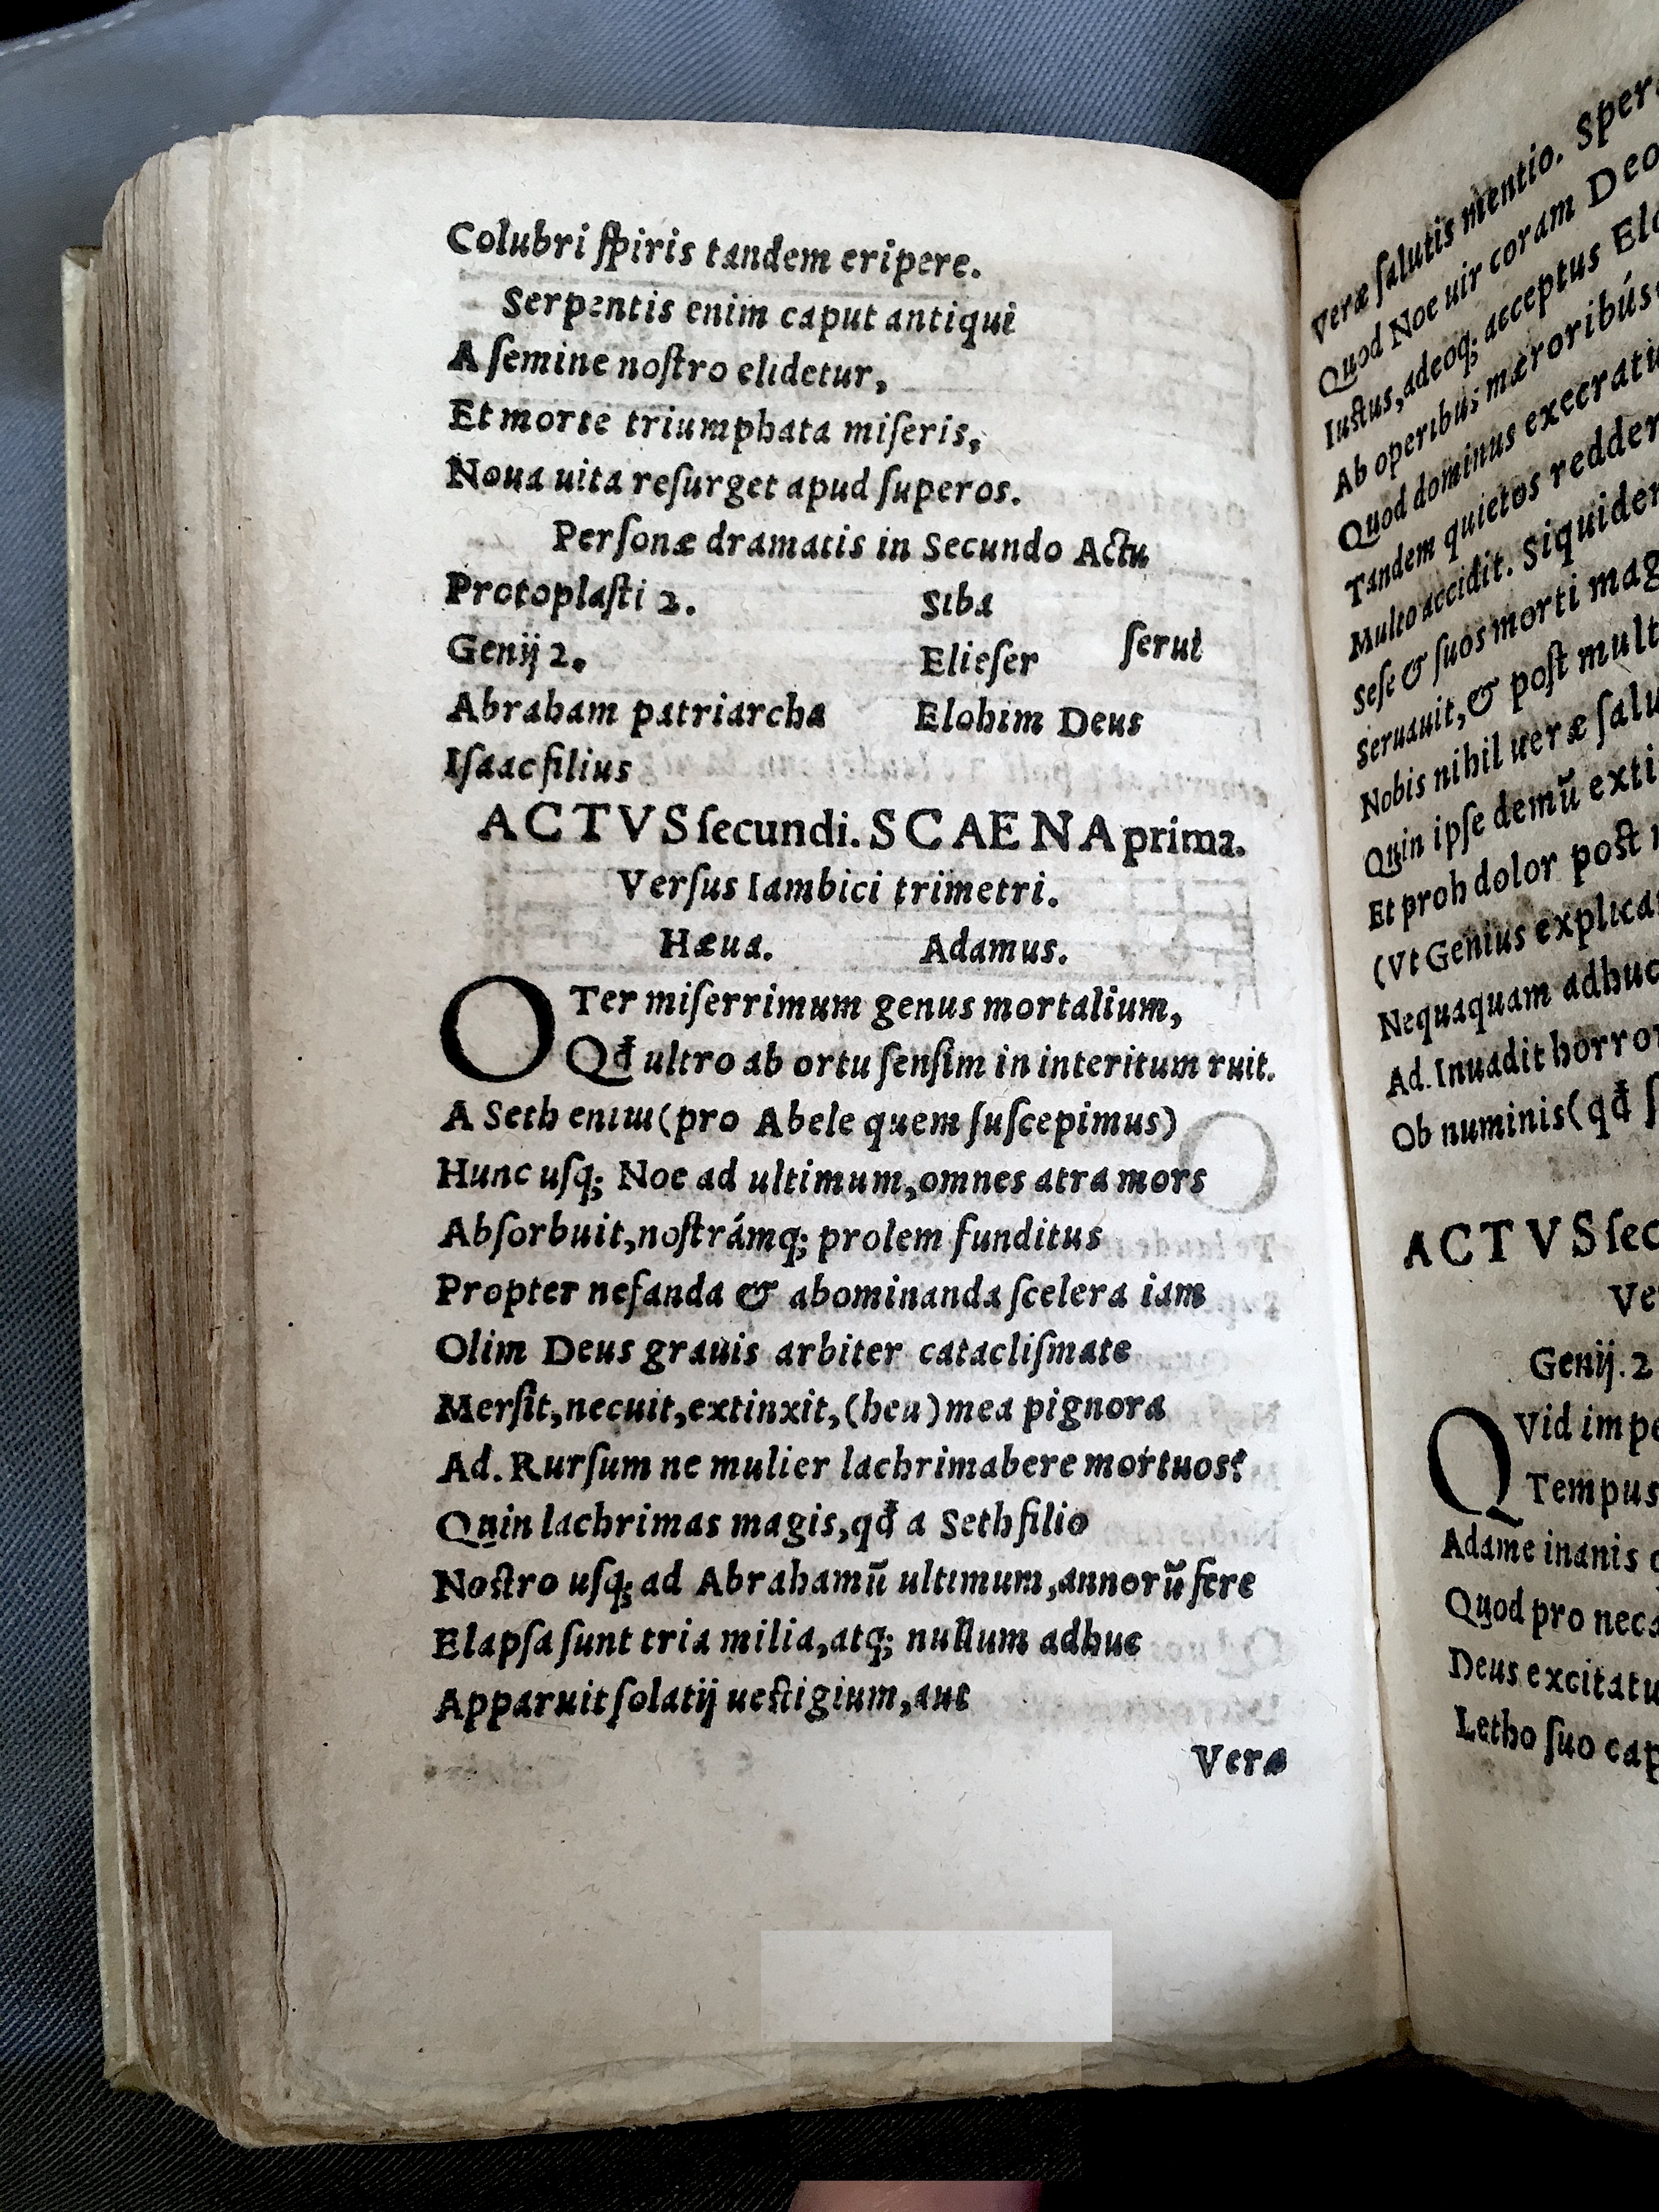 Colubri ſpiris tandem eripere.
Serpentis enim caput antiqui
A ſemine noſtro elidetur,
Et morte triumphata miſeris,
Noua uita reſurget apud ſuperos.
Perſonæ dramatis in Secundo Actu
Protoplaſti 2. Siba
Genij 2. Elieſer ſerui
Abraham patriarcha Elohim Deus
Iſaac filius
ACTVS ſecundi. SCAENA prima.
Verſus Iambici trimetri.
Hæua. Adamus.
O Ter miſerrimum genus mortalium,
Qđ ultro ab ortu ſenſim in interitum ruit.
A Seth enim (pro Abele quem ſuſcepimus)
Hunc uſq; Noe ad ultimum, omnes atra mors
Abſorbuit, noſtrámq; prolem funditus
Propter nefanda & abominanda ſcelera iam
Olim Deus grauis arbiter catacliſmate
Merſit, necuit, extinxit, (heu) mea pignora
Ad. Rurſum ne mulier lachrimabere mortuos?
Quin lachrimas magis, qđ a Seth filio
Noſtro uſq; ad Abrahamū ultimum, annorū fere
Elapſa ſunt tria milia, atq; nullum adhuc
Apparuit ſolatij ueſtigium, aut
Veræ
Veræ ſalutis mentio.
Quod Noe uir coram
Iuſtus, adeoq; acceptus
Ab operibus mæroribús
Quod dominus
Tandem quietos
Multo accidit.
Seſe & ſuos morti
Seruauit, & poſt
Nobis nihil ueræ
Quin ipſe demū
Et proh dolor poſt
(Vt Genius
Nequaquam adhuc
Ad. Inuadit
Ob numinis (qđ
ACTVS
Genij. 2
QVid
Tempus
Adame inanis
Quod pro
Deus
Letho ſuo